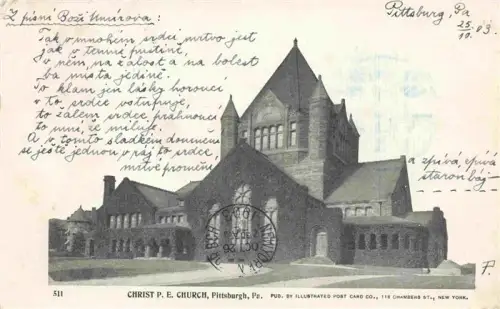 Z písní Boží Umírova:
Tak v mnohém srdci mrtvo jest
jak v temné pustině,
v něm na žalost a na bolest
ba místa jedině.
To klam jen lásky horoucí
v to srdce vstupuje,
to zálem srdce prahnoucí
to mní, že miluje.
A v tomto sladkém domnění
se ještě jednou v ráj to srdce
mrtvé promění
a zpívá, zpívá
staron báj -
Pittsburg, Pa
25.
10. 03.
P.
511
CHRIST P. E. CHURCH, Pittsburgh, Pa.
PUB. BY ILLUSTRATED POST CARD CO., 118 CHAMBERS ST., NEW YORK.